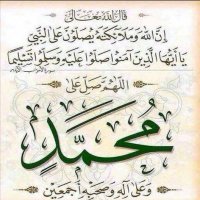 قَالَ اللهُ تَعَالَى
إِنَّ اللهَ وَمَلَائِكَتَهُ يُصَلُّونَ عَلَى النَّبِيِّ
يَا أَيُّهَا الَّذِينَ آمَنُوا صَلُّوا عَلَيْهِ وَسَلِّمُوا تَسْلِيمًا
اللَّهُمَّ صَلِّ عَلَى
مُحَمَّدٍ
وَعَلَى آلِهِ وَصَحْبِهِ أَجْمَعِينَ